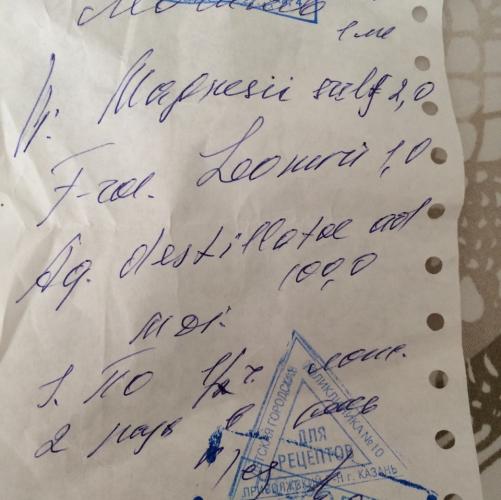 1 ме
Magnesii sulf 2,0
T-rae. Leonuri 1,0
Aq. destillatae ad
100,0
MDS.
S. По 1/2 ч. лож.
2 раза в
ДЕТСКАЯ ГОРОДСКАЯ ПОЛИКЛИНИКА №10
ДЛЯ
РЕЦЕПТОВ
ПРИВОЛЖСКИЙ Р-Н г. КАЗАНЬ